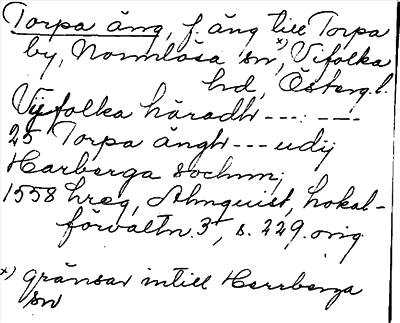 Torpa äng, f. äng till Torpa
by, Normlösa sn x), Vifolka
hd, Österg.l.
Vyfolka häradh --- . ---
25 Torpa ängh --- udij
Harberga sochnn;
1558 hreg, Almquist, Lokal-
förvaltn. 3, s. 229. orig
x) gränsar intill Herrberga
sn